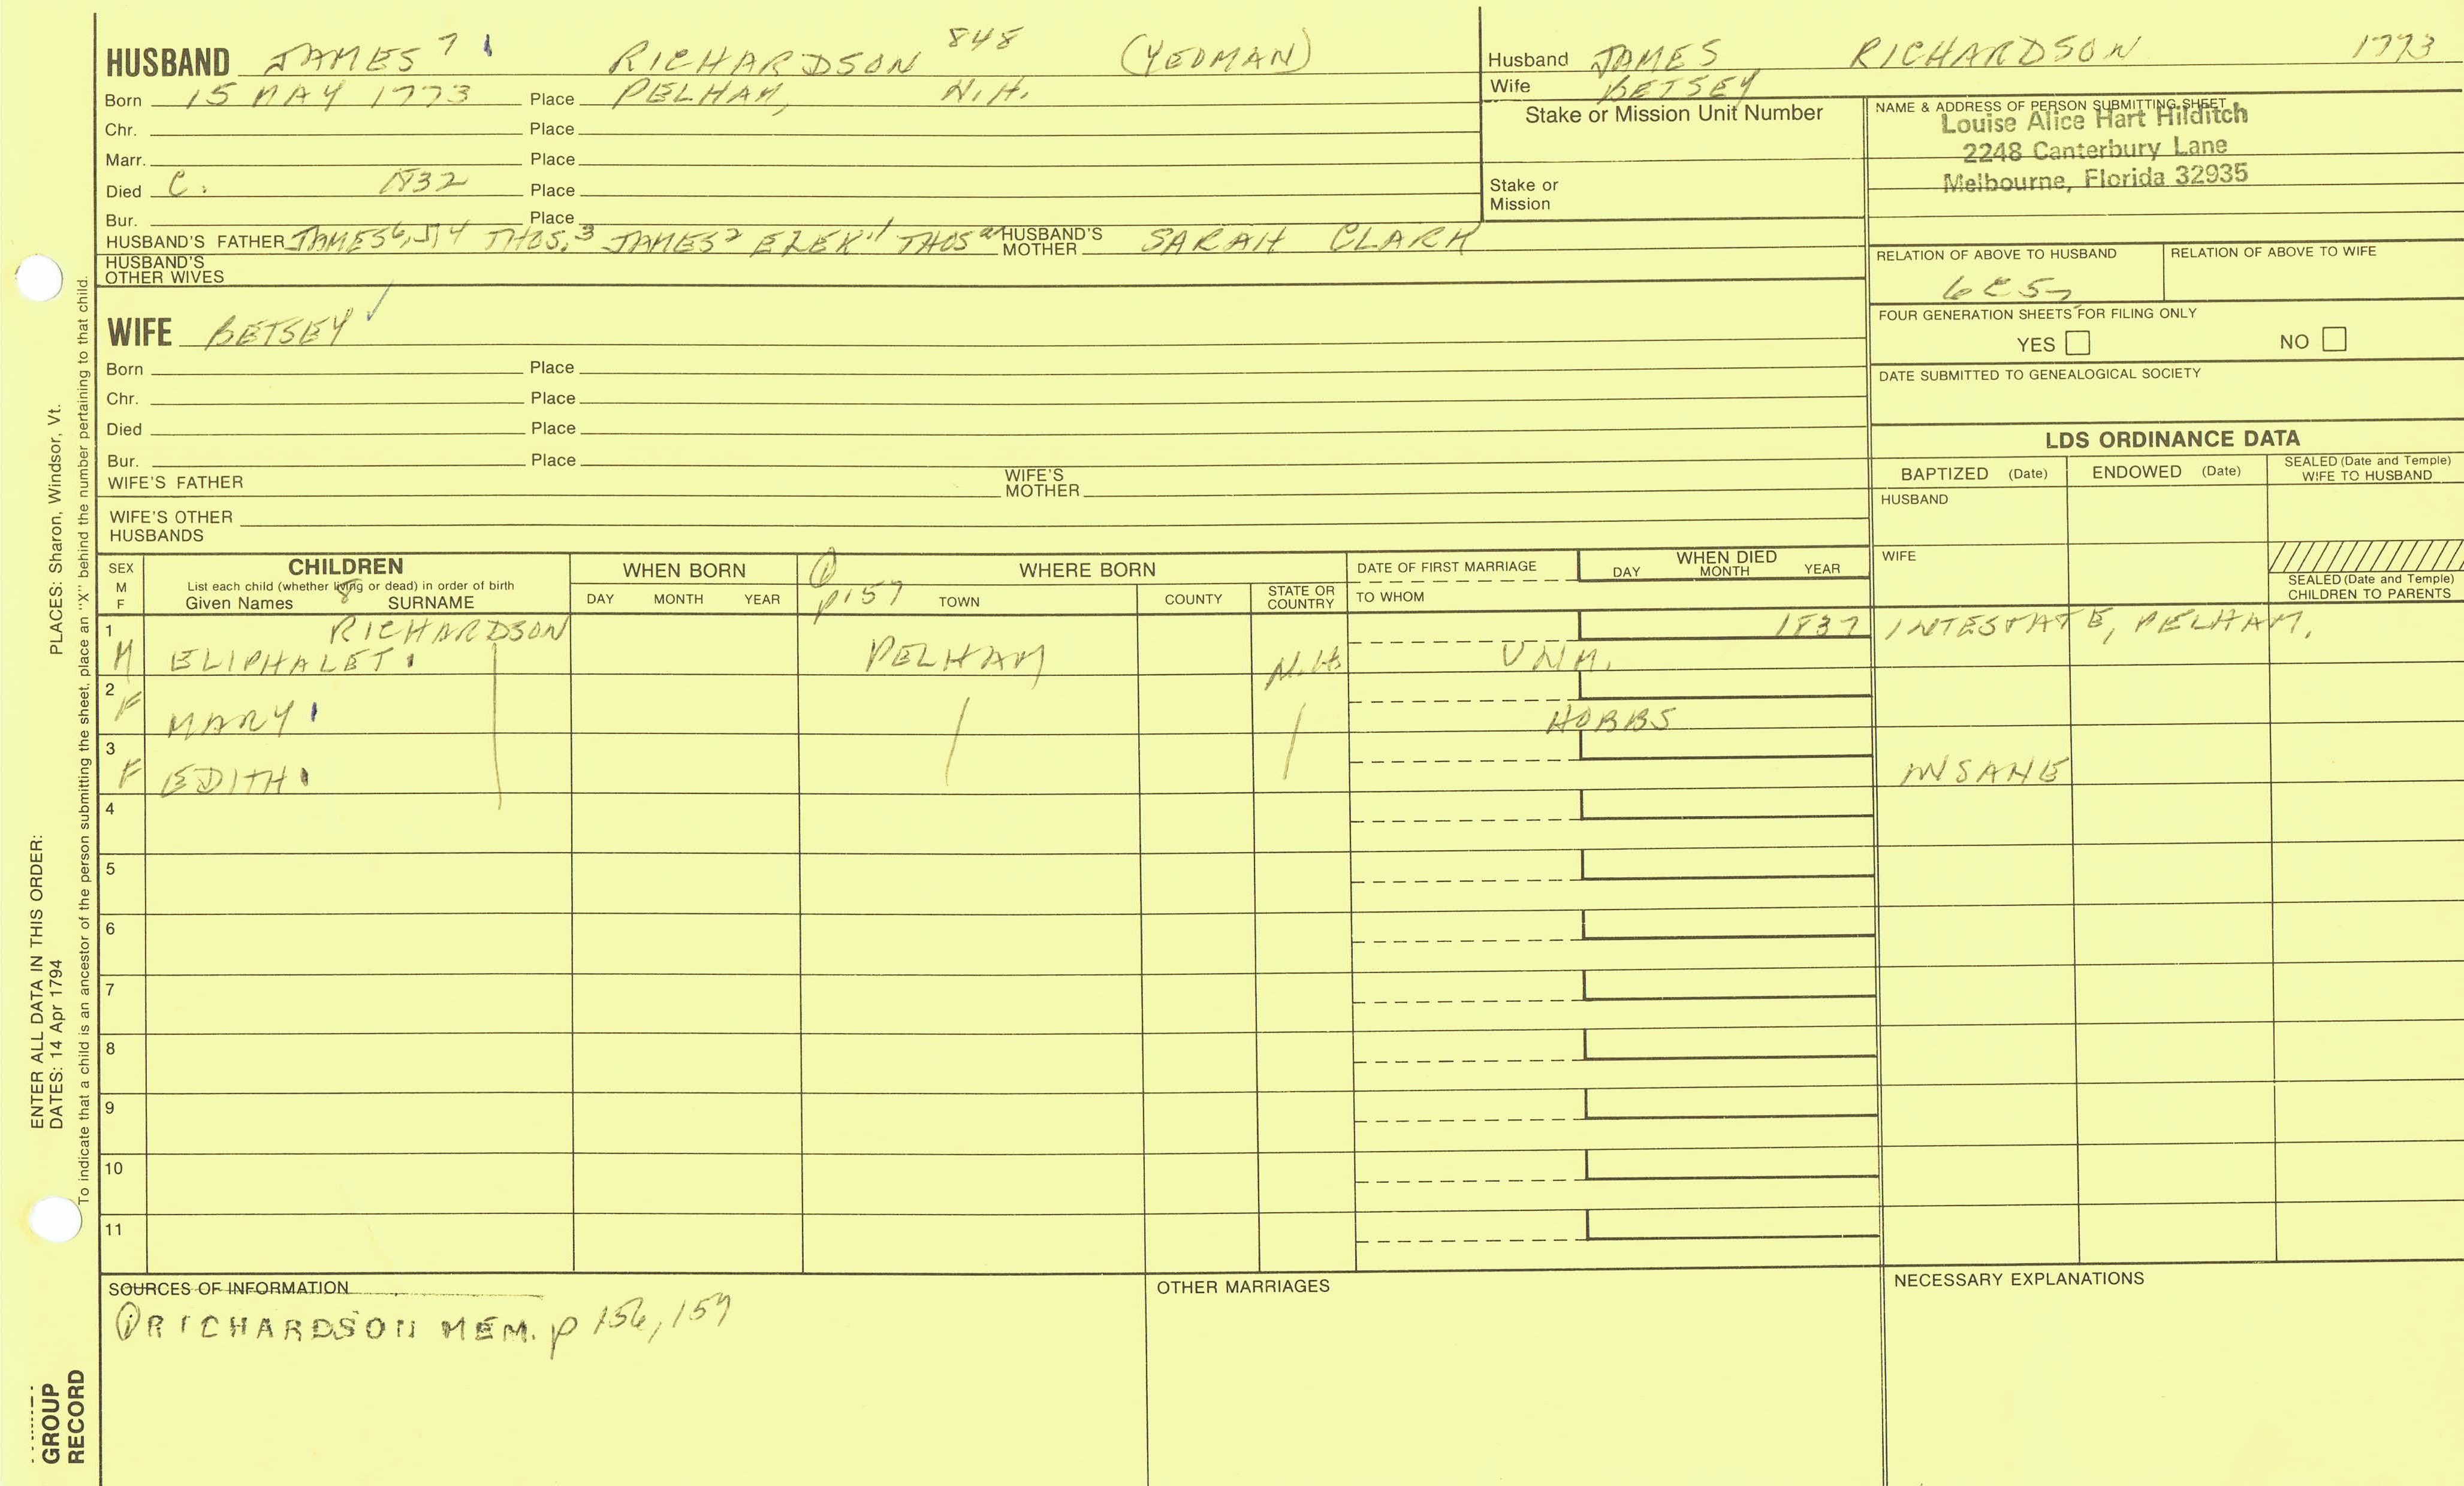 HUSBAND JAMES 7 RICHARDSON 848 (YEOMAN)
Born 15 MAY 1773 Place PELHAM, N.H.
Chr. Place
Marr. Place
Died C. 1832 Place
Bur. Place
HUSBAND'S FATHER JAMES 6, 5, 4 THOS. 3 JAMES 2 EZEK. 1 THOS a HUSBAND'S MOTHER SARAH CLARK
HUSBAND'S OTHER WIVES
Husband JAMES RICHARDSON 1773
Wife BETSEY
Stake or Mission Unit Number
Stake or Mission
NAME & ADDRESS OF PERSON SUBMITTING SHEET
Louise Alice Hart Hilditch
2248 Canterbury Lane
Melbourne, Florida 32935
RELATION OF ABOVE TO HUSBAND RELATION OF ABOVE TO WIFE
6C5
FOUR GENERATION SHEETS FOR FILING ONLY
YES NO
DATE SUBMITTED TO GENEALOGICAL SOCIETY
WIFE BETSEY
Born Place
Chr. Place
Died Place
Bur. Place
WIFE'S FATHER WIFE'S MOTHER
WIFE'S OTHER HUSBANDS
LDS ORDINANCE DATA
BAPTIZED (Date) ENDOWED (Date) SEALED (Date and Temple) WIFE TO HUSBAND
HUSBAND
WIFE
SEALED (Date and Temple) CHILDREN TO PARENTS
SEX M F
CHILDREN
List each child (whether living or dead) in order of birth
Given Names 8 SURNAME
WHEN BORN
DAY MONTH YEAR
1 p157
WHERE BORN
TOWN COUNTY STATE OR COUNTRY
DATE OF FIRST MARRIAGE
TO WHOM
WHEN DIED
DAY MONTH YEAR
1 RICHARDSON 1837 INTESTATE, PELHAM.
M ELIPHALET PELHAM N.H. UNM.
2
F MARY HOBBS
3
F EDITH INSANE
4
5
6
7
8
9
10
11
SOURCES OF INFORMATION
1 RICHARDSON MEM. p 156, 157
OTHER MARRIAGES
NECESSARY EXPLANATIONS
ENTER ALL DATA IN THIS ORDER:
DATES: 14 Apr 1794 PLACES: Sharon, Windsor, Vt.
To indicate that a child is an ancestor of the person submitting the sheet, place an "X" behind the number pertaining to that child.
GROUP
RECORD